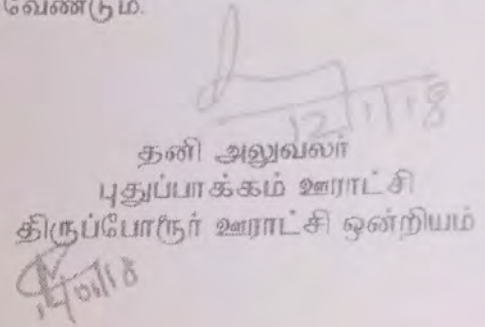 வேண்டும்.
12/1/18
தனி அலுவலர்
புதுப்பாக்கம் ஊராட்சி
திருப்போரூர் ஊராட்சி ஒன்றியம்